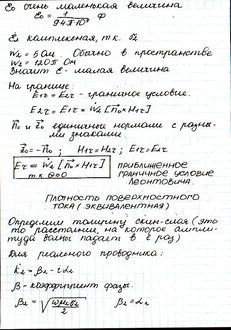 ε₀ очень маленькая величина
ε₀ = 1/(94π10⁹) Ф
ε₂ комплексная, т.к. σ₂
W₂ = 5 Ом Обычно в пространстве
W₂ = 120π Ом
Значит ε - малая величина
На границе:
E₁τ = E₂τ - граничное условие.
E₂τ = E₁τ = Ẇ₂ [n⃗₀ × H₁τ]
n⃗ и единичные нормали с разны-
ми знаками.
= -n⃗₀ ; H₁τ = H₂τ ; E₁τ = E₂τ
E₁τ = Ẇ₂ [n⃗₀ × H₁τ] приближенное
граничное условие
Леонтовича.
т.к
Плотность поверхностного
тока (эквивалентная)
Определим толщину скин-слоя (это
то расстояние, на которое ампли-
туда волны падает в е раз)
Для реального проводника:
k₂ = β₂ - iα₂
β - коэффициент фазы.
β₂ = √(ωμ₂σ₂/2) β₂ = α₂